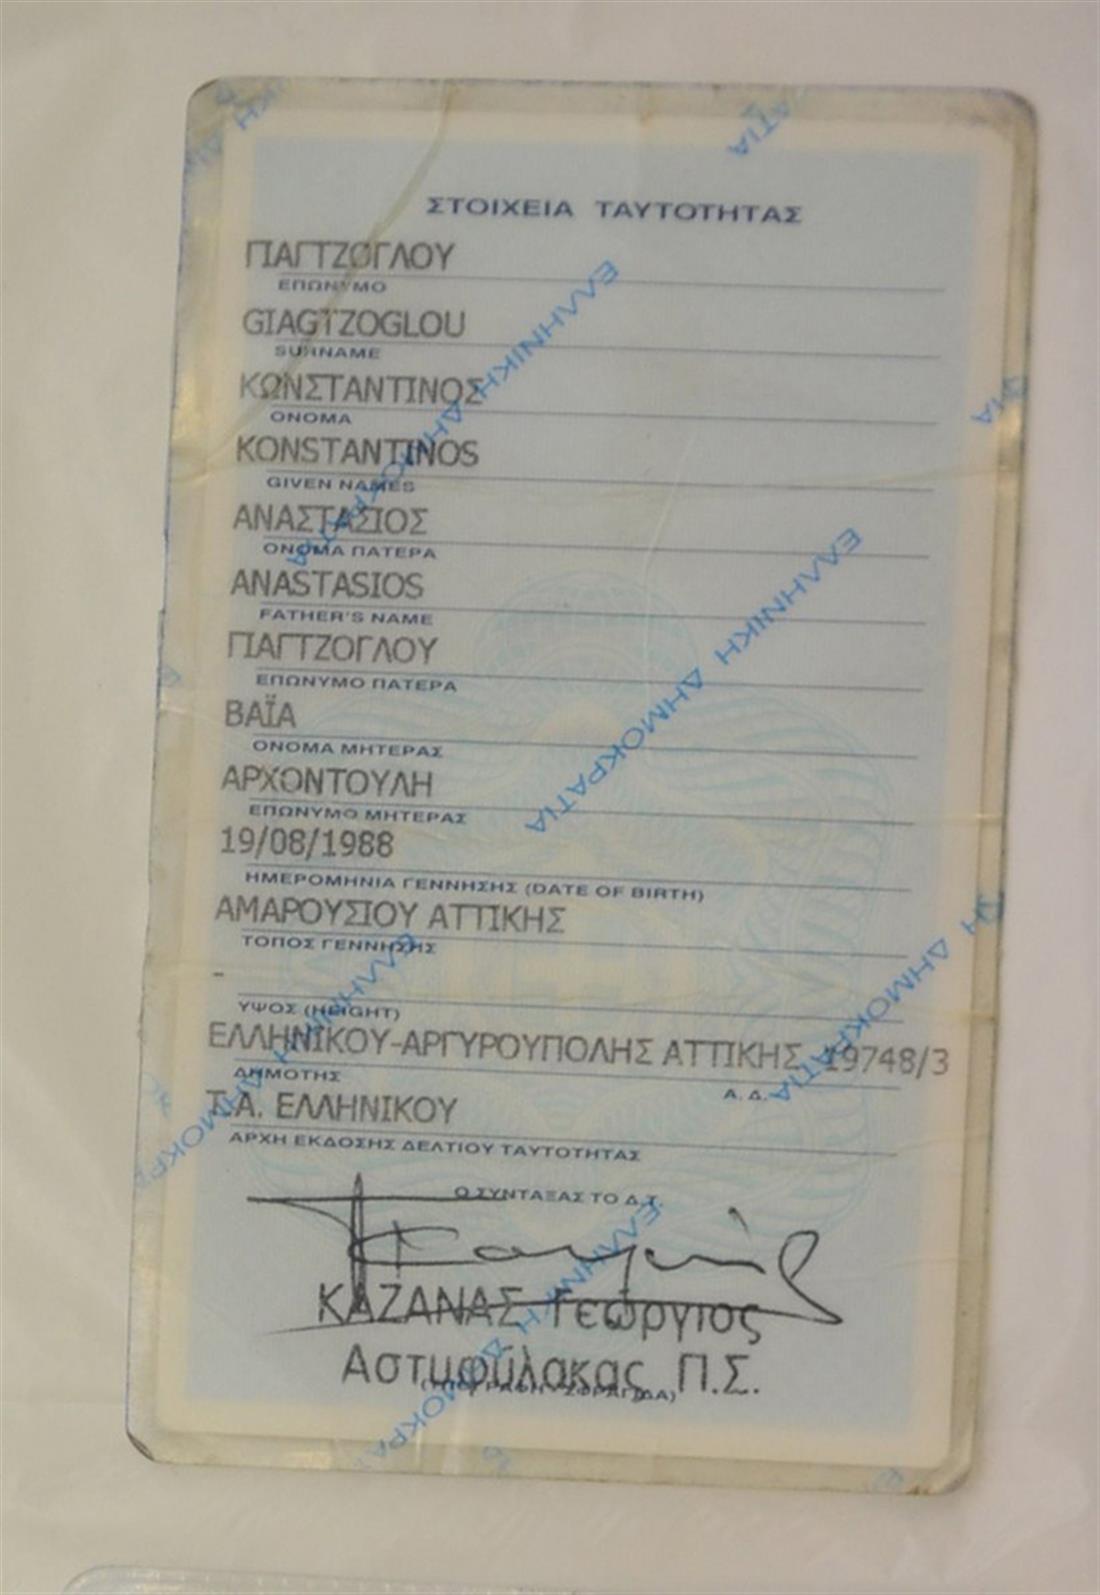 ΣΤΟΙΧΕΙΑ ΤΑΥΤΟΤΗΤΑΣ
ΓΙΑΓΤΖΟΓΛΟΥ
ΕΠΩΝΥΜΟ
GIAGTZOGLOU
SURNAME
ΚΩΝΣΤΑΝΤΙΝΟΣ
ΟΝΟΜΑ
KONSTANTINOS
GIVEN NAMES
ΑΝΑΣΤΑΣΙΟΣ
ΟΝΟΜΑ ΠΑΤΕΡΑ
ANASTASIOS
FATHER'S NAME
ΓΙΑΓΤΖΟΓΛΟΥ
ΕΠΩΝΥΜΟ ΠΑΤΕΡΑ
ΒΑΪΑ
ΟΝΟΜΑ ΜΗΤΕΡΑΣ
ΑΡΧΟΝΤΟΥΛΗ
ΕΠΩΝΥΜΟ ΜΗΤΕΡΑΣ
19/08/1988
ΗΜΕΡΟΜΗΝΙΑ ΓΕΝΝΗΣΗΣ (DATE OF BIRTH)
ΑΜΑΡΟΥΣΙΟΥ ΑΤΤΙΚΗΣ
ΤΟΠΟΣ ΓΕΝΝΗΣΗΣ
-
ΥΨΟΣ (HEIGHT)
ΕΛΛΗΝΙΚΟΥ-ΑΡΓΥΡΟΥΠΟΛΗΣ ΑΤΤΙΚΗΣ 19748/3
ΔΗΜΟΤΗΣ Α.Δ.
Τ.Α. ΕΛΛΗΝΙΚΟΥ
ΑΡΧΗ ΕΚΔΟΣΗΣ ΔΕΛΤΙΟΥ ΤΑΥΤΟΤΗΤΑΣ
Ο ΣΥΝΤΑΞΑΣ ΤΟ Δ.Τ.
ΚΑΖΑΝΑΣ Γεώργιος
Αστυφύλακας Π.Σ.
(ΥΠΟΓΡΑΦΗ - ΣΦΡΑΓΙΔΑ)
ΕΛΛΗΝΙΚΗ ΔΗΜΟΚΡΑΤΙΑ
ΕΛΛΗΝΙΚΗ ΔΗΜΟΚΡΑΤΙΑ
ΕΛΛΗΝΙΚΗ ΔΗΜΟΚΡΑ
ΕΛΛΗΝΙΚΗ ΔΗΜΟΚΡΑ
ΚΗ ΔΗΜΟΚΡΑΤΙΑ